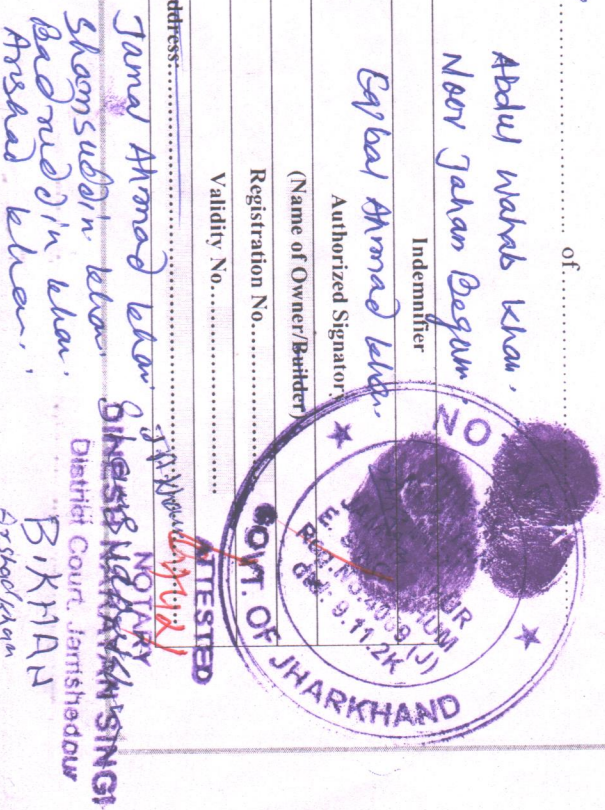 of
Abdul Wahab Khan.
Noor Jahan Begum
Indemnifier
Eqbal Ahmad khan
Authorized Signator
(Name of Owner/Builder)
Registration No.
Validity No.
ddress
Jamal Ahmad khan
Shamsuddin khan.
Badruddin khan.
Arshad khan.
NO
JAMSHEDPUR
REG. NO. 4039 (J)
9.11.2K
GOVT. OF JHARKHAND
ATTESTED
NOTARY
DINESH NARAYAN SINGH
District Court, Jamshedpur
Arshad khan